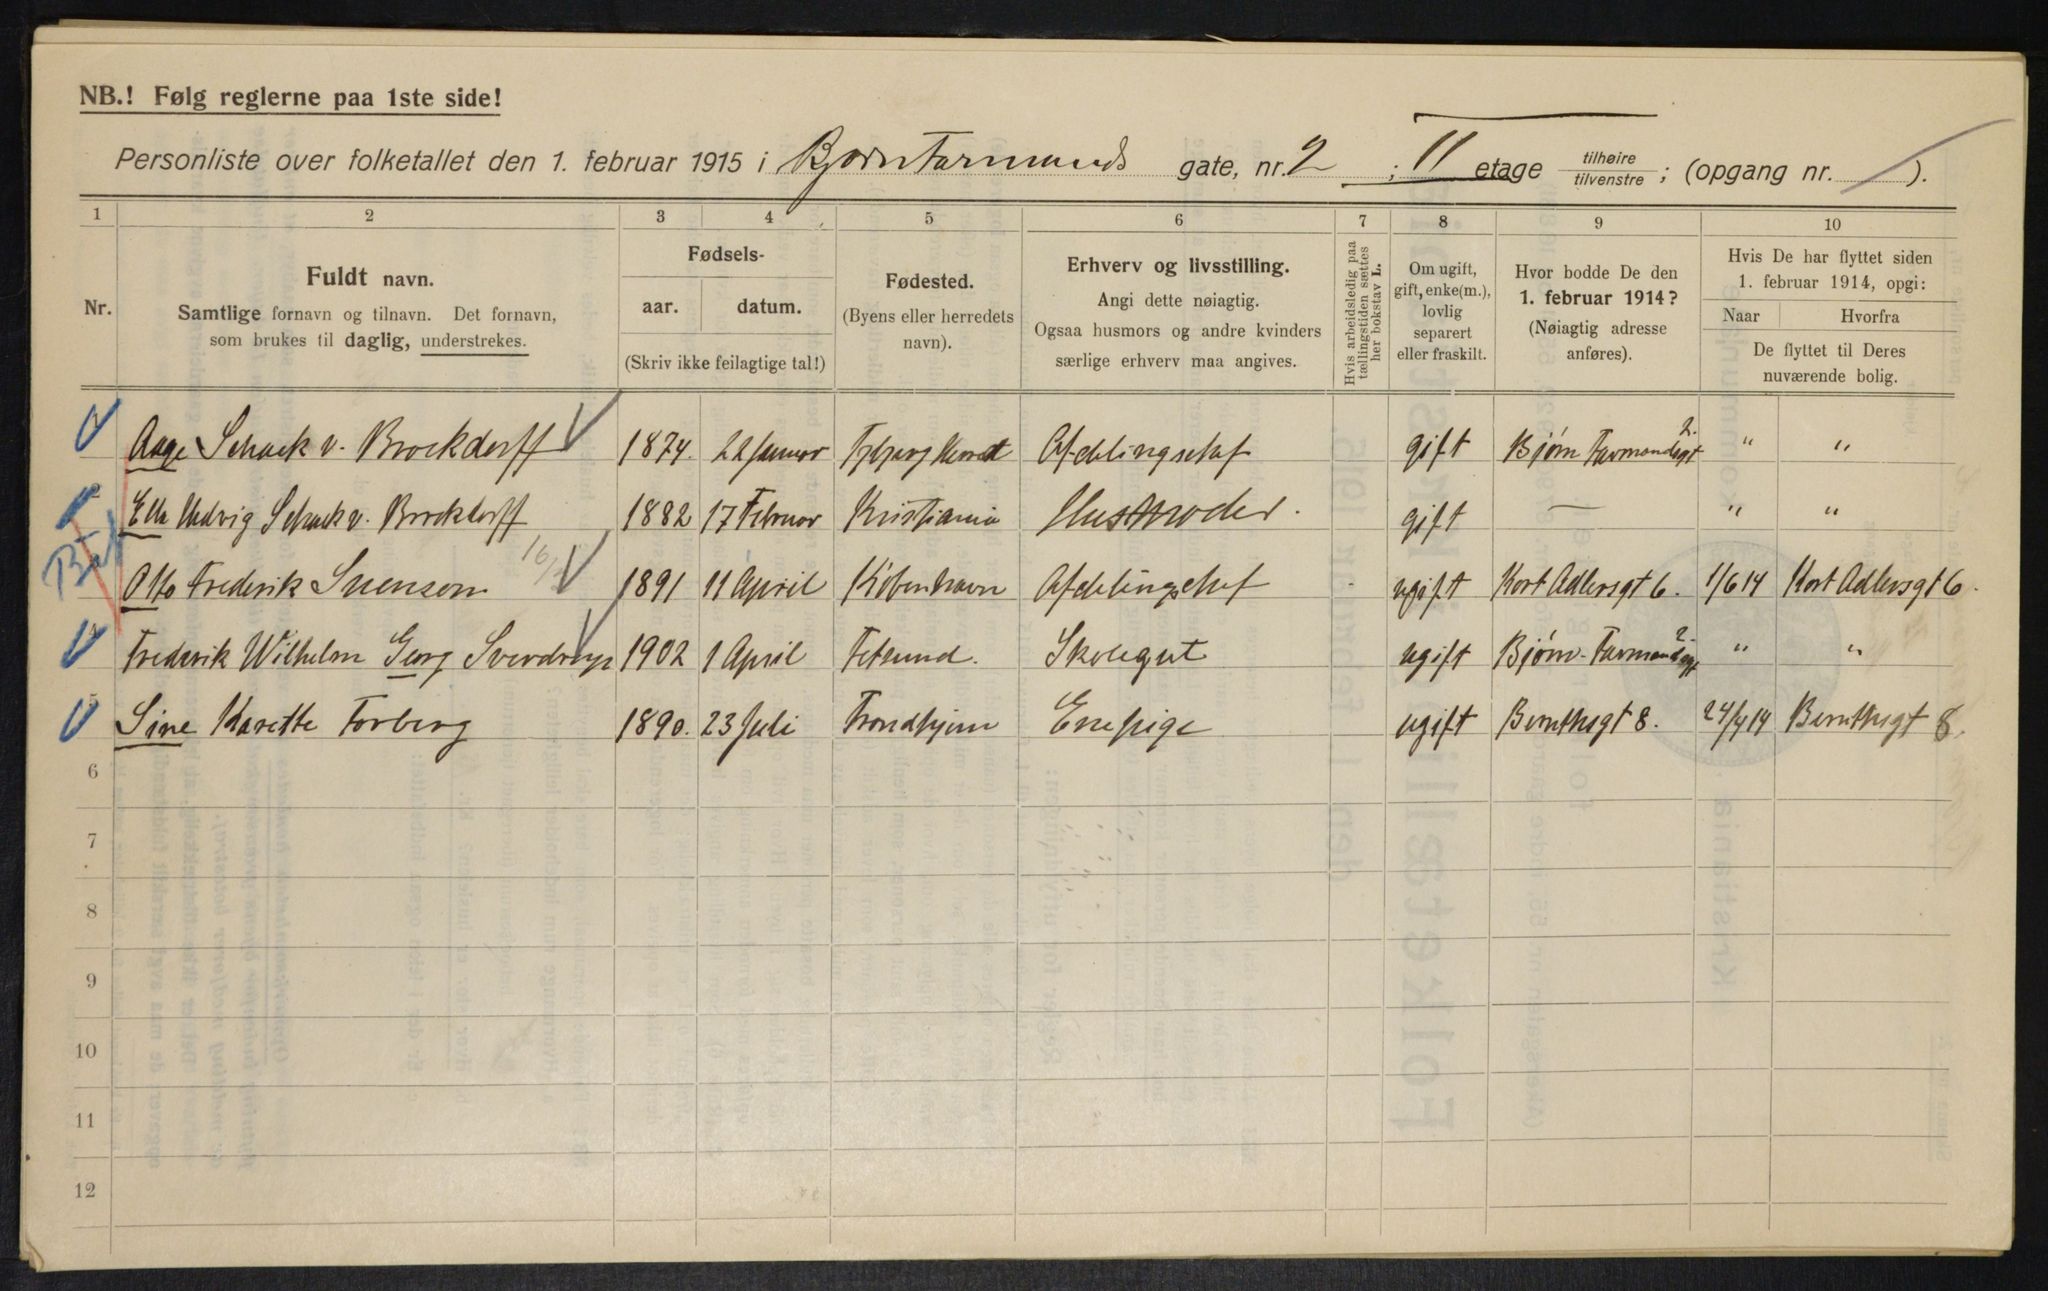 NB.! Følg reglerne paa 1ste side!
Personliste over folketallet den 1. februar 1915 i Bjørn Farmands gate, nr. 2 ; II etage tilhøire tilvenstre ; (opgang nr. ).
1 2 3 4 5 6 7 8 9 10
Nr.
Fuldt navn.
Samtlige fornavn og tilnavn. Det fornavn,
som brukes til daglig, understrekes.
Fødsels-
aar. datum.
(Skriv ikke feilagtige tal!)
Fødested.
(Byens eller herredets
navn).
Erhverv og livsstilling.
Angi dette nøiagtig.
Ogsaa husmors og andre kvinders
særlige erhverv maa angives.
Hvis arbeidsledig paa
tællingstiden sættes
her bokstav L.
Om ugift,
gift, enke(m.),
lovlig
separert
eller fraskilt.
Hvor bodde De den
1. februar 1914?
(Nøiagtig adresse
anføres).
Hvis De har flyttet siden
1. februar 1914, opgi:
Naar Hvorfra
De flyttet til Deres
nuværende bolig.
Aage Schack v. Brockdorff 1874. 22 Januar Afdelingschef gift Bjørn Farmandsgt 2. " "
Ella Hedvig Schack v. Brockdorff 1882 17 Februar Kristiania Husmoder. gift — " "
Otto Frederik Suenson 1891 11 April København Afdelingschef ugift Kort Adlersgt 6. 1/6 14 Kort Adlersgt 6.
4 Frederik Wilhelm Georg Sverdrup 1902 1 April Fetsund. Skolegut ugift Bjørn Farmandsgt 2. " "
5 Sine Karette Forberg 1890. 23 Juli Trondhjem Enepige ugift Bernthsgt 8. 24/4 14 Bernthsgt 8.
6
7
8
9
10
11
12